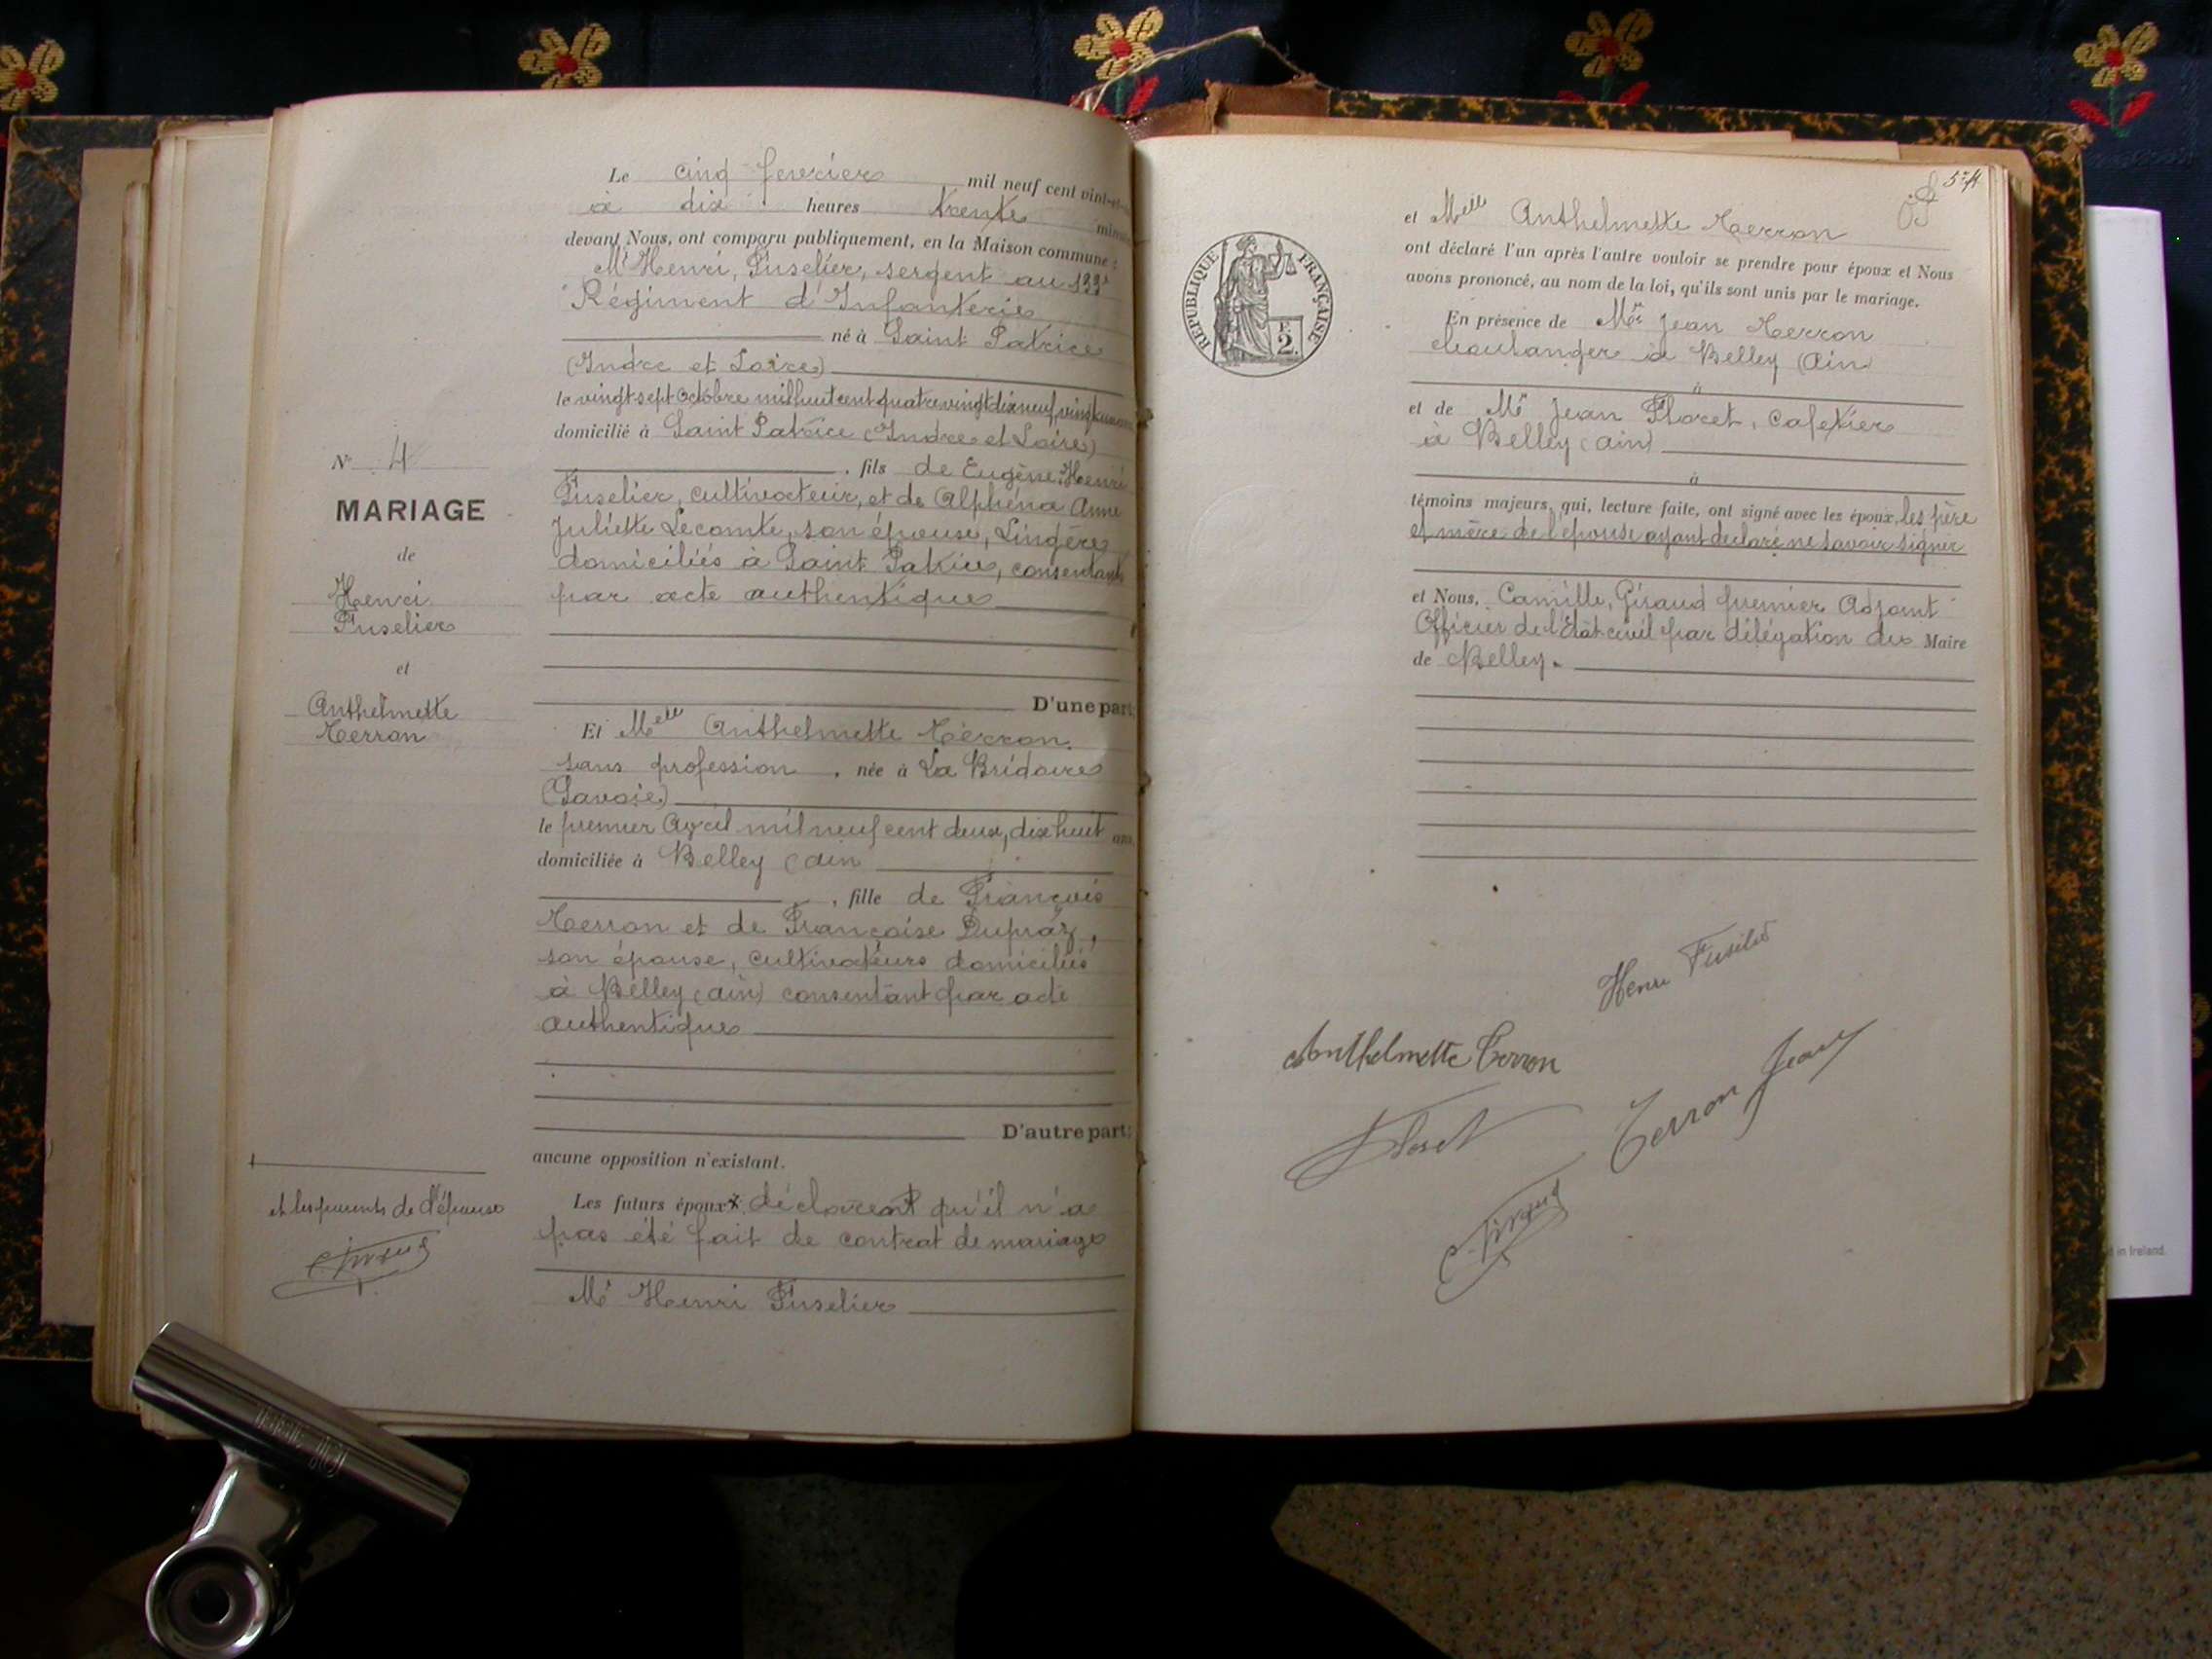 Le cinq fevrier mil neuf cent vint-et-
à dix heures trente
devant Nous, ont comparu publiquement, en la Maison commune :
Mr Henri, Fuselier, sergent au 133e
Régiment d'Infanterie
né à Saint Patrice
(Indre et Loire)
le vingt-sept Octobre mil huit cent quatre vingt dix neuf, vingt un ans
domicilié à Saint Patrice (Indre et Loire)
, fils de Eugène Henri
Fuselier, cultivateur, et de Alphéna Anne
Juliette Lecomte, son épouse, Lingère
domiciliés à Saint Patrice, consentants
par acte authentique
D'une part
Et Melle Anthelmette Terron
sans profession, née à La Bridoire
(Savoie)
le premier Avril mil neuf cent deux, dix huit ans
domiciliée à Belley (ain
, fille de François
Terron et de Françoise Dupraz,
son épouse, cultivateurs domiciliés
à Belley (ain) consentant par acte
authentique
D'autre part;
aucune opposition n'existant.
Les futurs époux * déclarent qu'il n'a
pas été fait de contrat de mariage
Mr Henri Fuselier
No 4
MARIAGE
de
Henri
Fuselier
et
Anthelmette
Terron
et les parents de l'épouse
C. Giraud
54
et Melle Anthelmette Terron
ont déclaré l'un après l'autre vouloir se prendre pour époux et Nous
avons prononcé, au nom de la loi, qu'ils sont unis par le mariage.
En présence de Mr Jean Terron
boulanger à Belley (Ain)
à
et de Mr Jean Floret, cafetier
à Belley (ain)
à
témoins majeurs, qui, lecture faite, ont signé avec les époux, les père
et mère de l'épouse ayant declaré ne savoir signer
et Nous, Camille, Giraud premier Adjoint
Officier de l'Etat civil par délégation du Maire
de Belley.
REPUBLIQUE FRANÇAISE
F. 2.
Henri Fuselier
Anthelmette Terron
Floret
Terron Jean
C. Giraud
in Ireland.